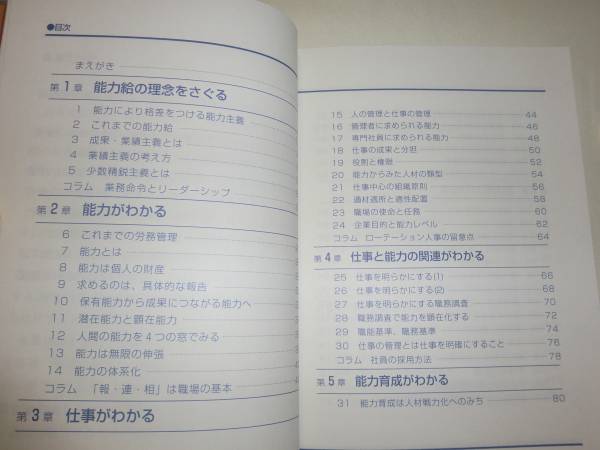 ●目次
まえがき
第1章 能力給の理念をさぐる
1 能力により格差をつける能力主義
2 これまでの能力給
3 成果・業績主義とは
4 業績主義の考え方
5 少数精鋭主義とは
コラム 業務命令とリーダーシップ
第2章 能力がわかる
6 これまでの労務管理
7 能力とは
8 能力は個人の財産
9 求めるのは、具体的な報告
10 保有能力から成果につながる能力へ
11 潜在能力と顕在能力
12 人間の能力を4つの窓でみる
13 能力は無限の伸張
14 能力の体系化
コラム 「報・連・相」は職場の基本
第3章 仕事がわかる
15 人の管理と仕事の管理 44
16 管理者に求められる能力 46
17 専門社員に求められる能力 48
18 仕事の成果と分担 50
19 役割と権限 52
20 能力からみた人材の類型 54
21 仕事中心の組織原則 56
22 適材適所と適性配置 58
23 職場の使命と任務 60
24 企業目的と能力レベル 62
コラム ローテーション人事の留意点 64
第4章 仕事と能力の関連がわかる
25 仕事を明らかにする(1) 66
26 仕事を明らかにする(2) 68
27 仕事を明らかにする職務調査 70
28 職務調査で能力を顕在化する 72
29 職能基準、職務基準 74
30 仕事の管理とは仕事を明確にすること 76
コラム 社員の採用方法 78
第5章 能力育成がわかる
31 能力育成は人材戦力化へのみち 80